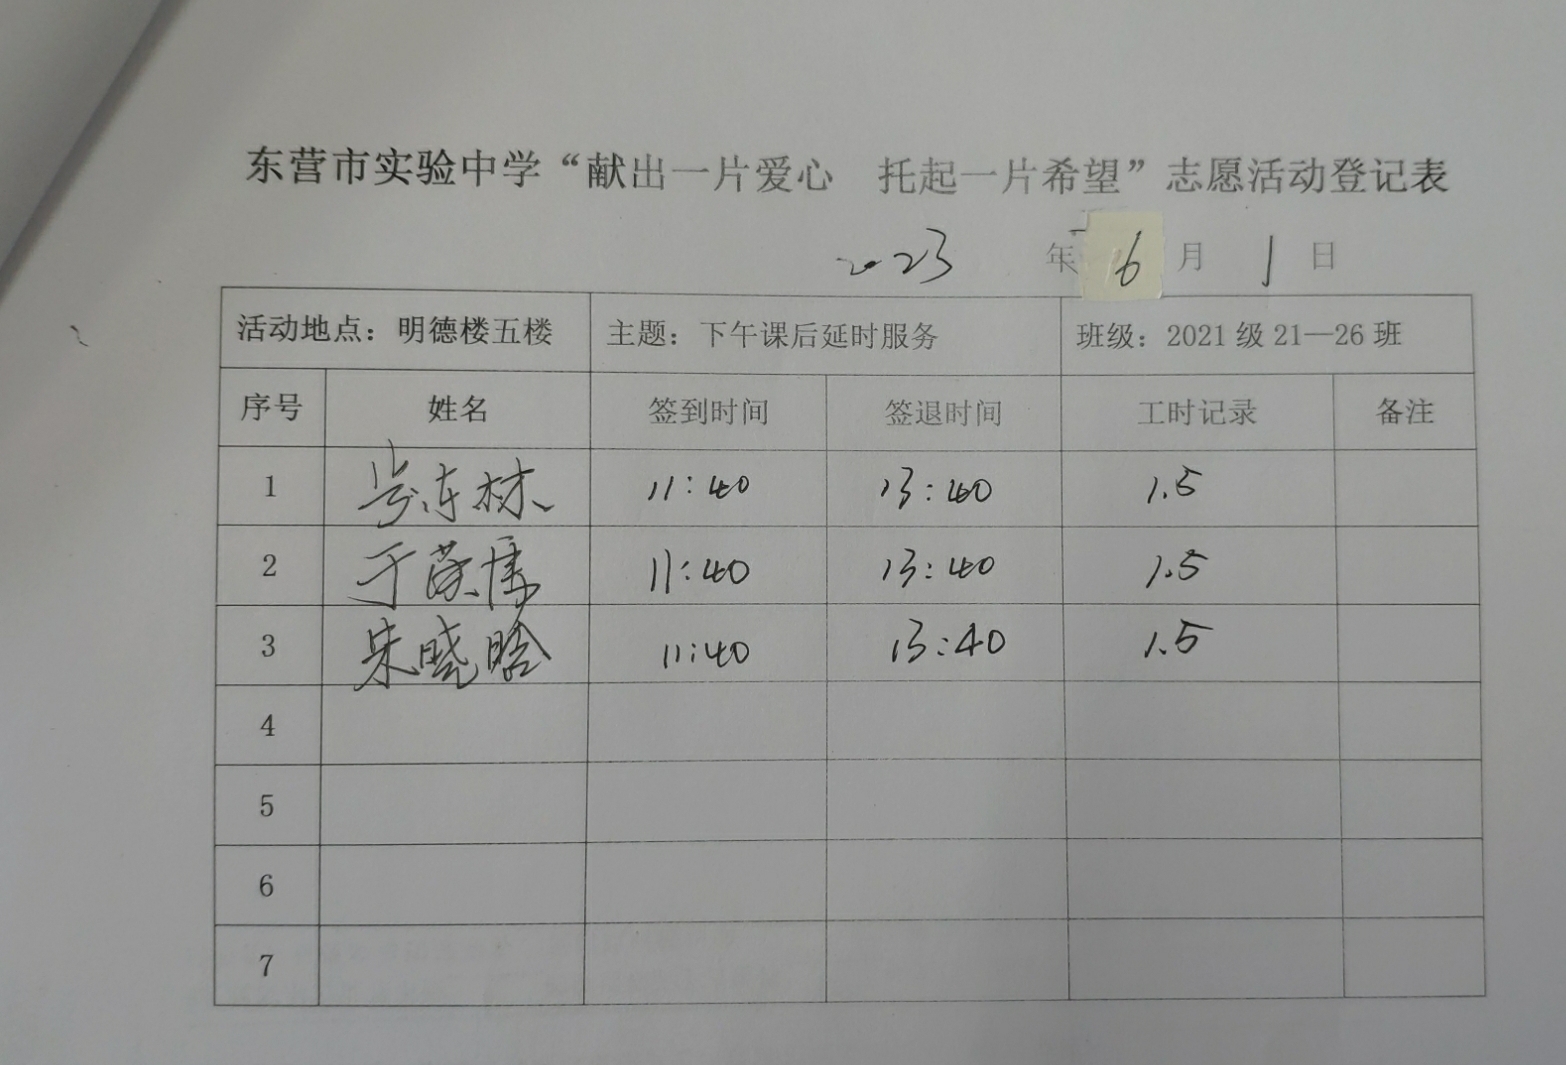 东营市实验中学“献出一片爱心 托起一片希望”志愿活动登记表
2023 年 6 月 1 日
活动地点：明德楼五楼 主题：下午课后延时服务 班级：2021 级 21—26 班
序号 姓名 签到时间 签退时间 工时记录 备注
1 林 11:40 13:40 1.5
2 于 11:40 13:40 1.5
3 朱晓晗 11:40 13:40 1.5
4
5
6
7